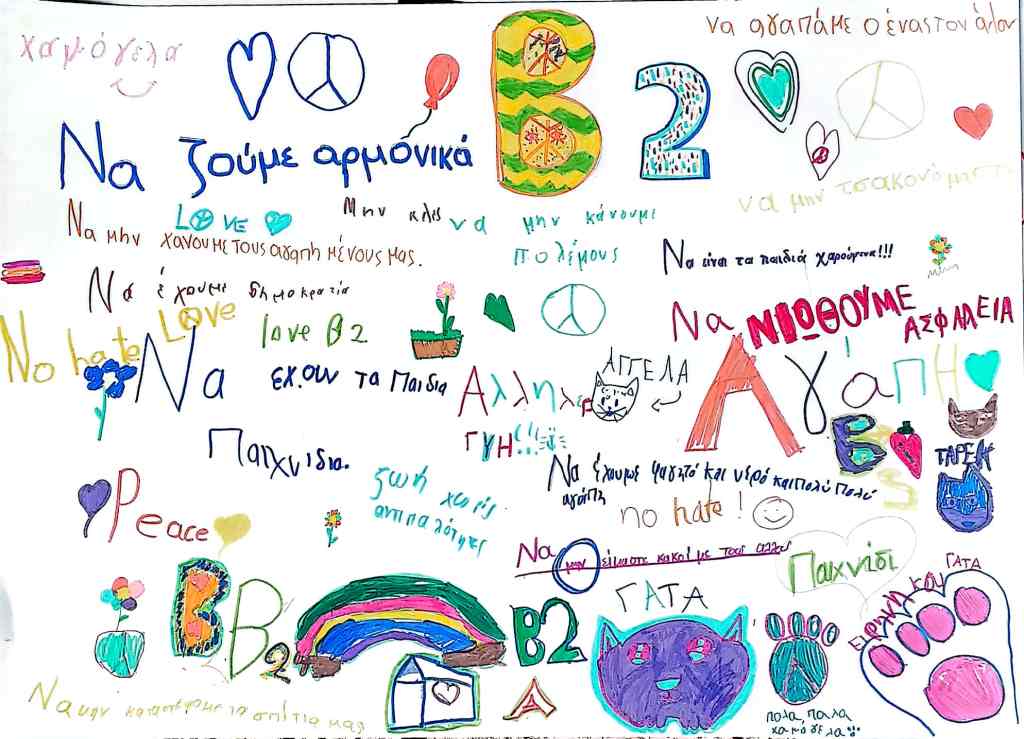 χαμόγελα
B2
να αγαπάμε ο ένας τον άλλον
Να ζούμε αρμόνικά
να μην
Love
Μην κλες
να μην κάνουμε
πολέμους
Να μην χάνουμε τους αγαπημένους μας.
Να είναι τα παιδιά χαρούμενα!!!
Να έχουμε δημοκρατία
No hate Love
love B2
Να ΝΙΩΘΟΥΜΕ
ΑΣΦΑΛΕΙΑ
Να έχουν τα Παιδια
Παιχνίδια.
Αλληλε
ΓΥΗ!!
ΑΓΓΕΛΑ
Αγάπη
ΤΑΡΕΛ
Να έχουμε φαγητό και νερό και πολύ πολύ
αγάπη
Peace
ζωή χωρίς
αντιπαλότητες
no hate!
Να μην είμαστε κακοί με τους άλλους
Παιχνίδι
B
B2
B2
ΓΑΤΑ
ΕΙΡΗΝΗ και
ΓΑΤΑ
Να μην καταστρέφουμε τα σπίτια μας
Α
πολα, πολα
χαμογελα